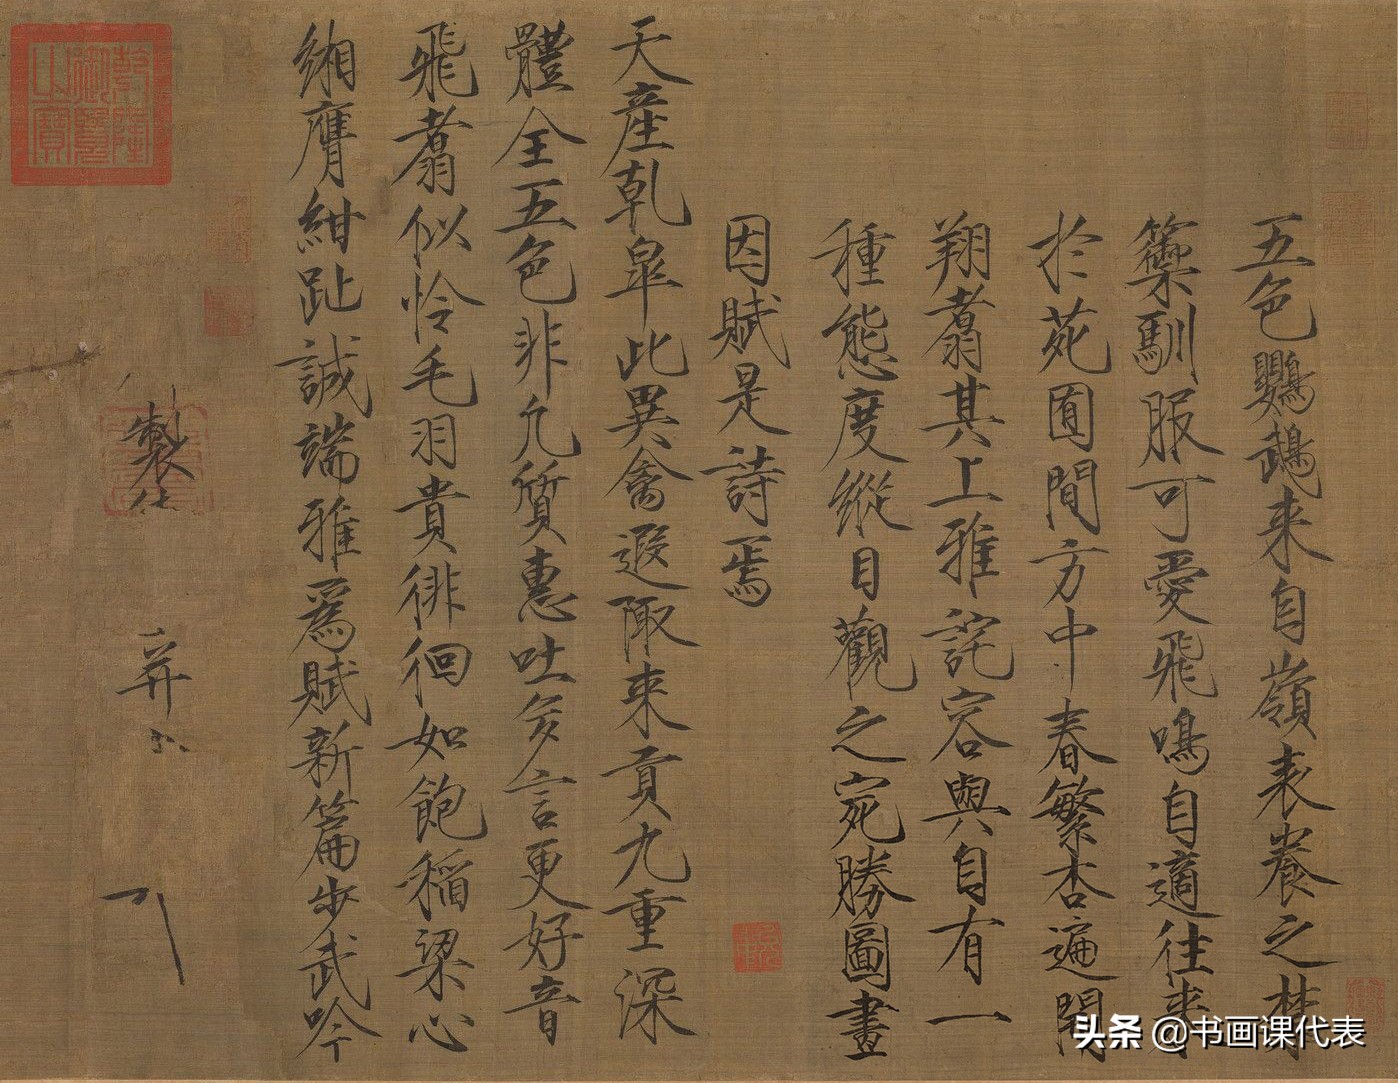 五色鸚鵡来自嶺表養之禁
籞馴服可愛飛鳴自適往来
扵苑囿間方中春繁杏遍開
翔翥其上雅詫容與自有一
種態度縱目觀之宛勝圖畫
因賦是詩焉
天產乾皐此異禽遐陬来貢九重深
體全五色非凢質惠吐多言更好音
飛翥似怜毛羽貴徘徊如飽稲梁心
緗膺紺趾誠端雅為賦新篇步武吟
製
并
乾隆御覽之寶
头条 @书画课代表